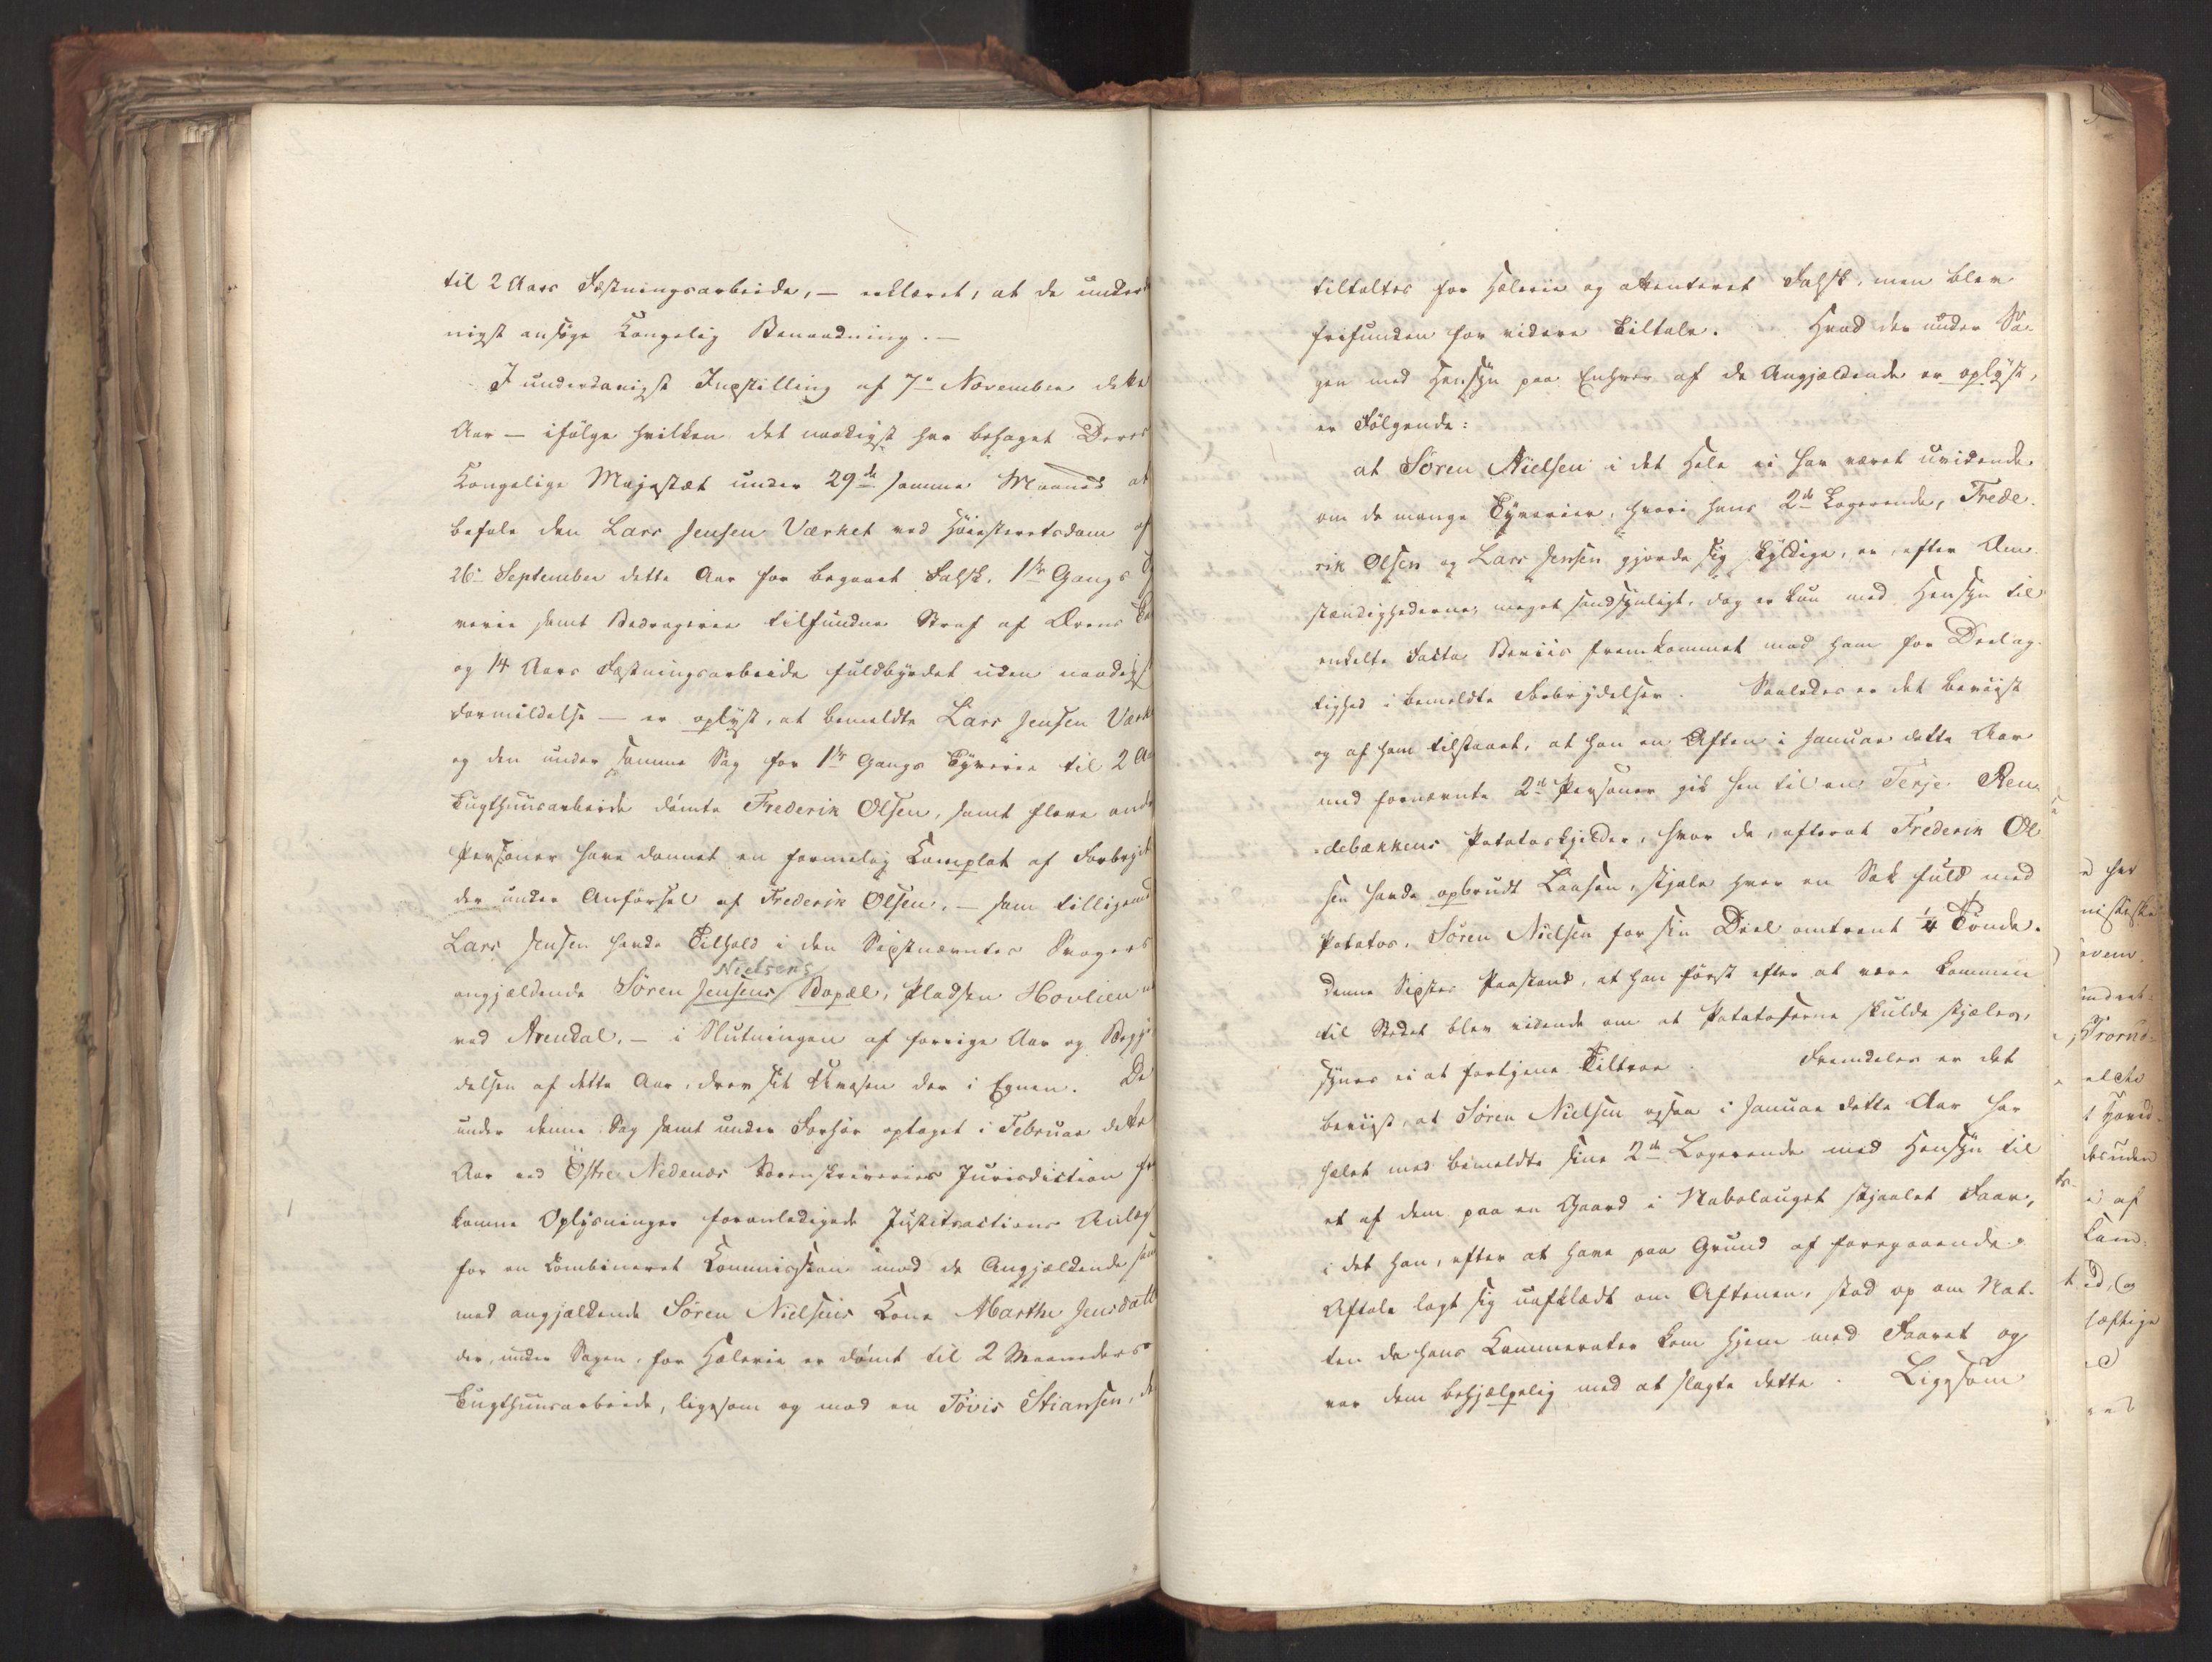 til 2 Aars Fæstningsarbeide, — erklæret, at de underda
nigst ansøge Kongelig Benaadning. —
I underdanigst Indstilling af 7de November dette
Aar — ifølge hvilken det naadigst har behaget Deres
Kongelige Majestæt under 29de samme Maaned at
befale den Lars Jensen Værket ved Høiesteretsdom af
26de September dette Aar for begaaet Falsk, 1ste Gangs Ty
verie samt Bedragerie tilfundne Straf af Ærens Tab
og 14 Aars Fæstningsarbeide fuldbyrdet uden naadigst
Formildelse — er oplyst, at bemeldte Lars Jensen Værk
og den under samme Sag for 1ste Gangs Tyverie til 2 Aa
Tugthuusarbeide dømte Frederik Olsen, samt flere andre
Personer have dannet en formelig Complot af Forbryde
der under Anførsel af Frederik Olsen, — som tilligemed
Lars Jensen havde Tilhold i den Sidstnævntes Svogers
Nielsens
angjældende Søren Jensens Bopæl, Pladsen Hovlien
ved Arendal, — i Slutningen af forrige Aar og Begyn
delsen af dette Aar, drev sit Uvæsen der i Egnen. De
under denne Sag samt under Forhør optaget i Februar dette
Aar ved Østre Nedenæs Sorenskriveries Jurisdiction fr
komne Oplysninger foranledigede Justitsactions Anlæg
for en combineret Commission mod de Angjældende sam
mod angjældende Søren Nielsens Kone Marthe Jensdatt
der, under Sagen, for Hælerie er dømt til 2 Maaneders
Tugthuusarbeide, ligesom og mod en Tövis Stiansen, de
tiltaltes for Hælerie og attenteret Falsk, men blev
frifunden for videre Tiltale. Hvad der under Sa-
gen med Hensyn paa Enhver af de Angjældende er oplyst,
er Følgende:
at Søren Nielsen i det Hele ei har været uvidende
om de mange Tyverier, hvori hans 2de Logerende, Frede-
rik Olsen og Lars Jensen gjorde sig skyldige, er, efter Om-
stændighederne, meget sandsynligt, dog er kun med Hensyn til
enkelte Facta Beviis fremkommet mod ham for Deelag-
tighed i bemeldte Forbrydelser. Saaledes er det beviist
og af ham tilstaaet, at han en Aften i Januar dette Aar
med fornævnte 2de Personer gik hen til en Terje Ren-
debækkens Potetoskjelder, hvor de, efterat Frederik Ol
sen havde opbrudt Laasen, stjal hver en Sæk fuld med
Potatos, Søren Nielsen for sin Deel omtrent 1/4 Tønde.
Denne Sidstes Paastand, at han først efter at være kommen
til Stedet blev vidende om at Potatoserne skulde stjæles,
synes ei at fortjene Tiltroe. Fremdeles er det
beviist, at Søren Nielsen ogsaa i Januar dette Aar har
hælet med bemeldte sine 2de Logerende med Hensyn til
et af dem paa en Gaard i Nabolauget stjaalet Faar,
i det han, efter at have paa Grund af foregaaende
Aftale lagt sig uafklædt om Aftenen, stod op om Nat-
ten da hans Kammerater kom hjem med Faaret og
var dem behjælpelig med at slagte dette. Ligesom